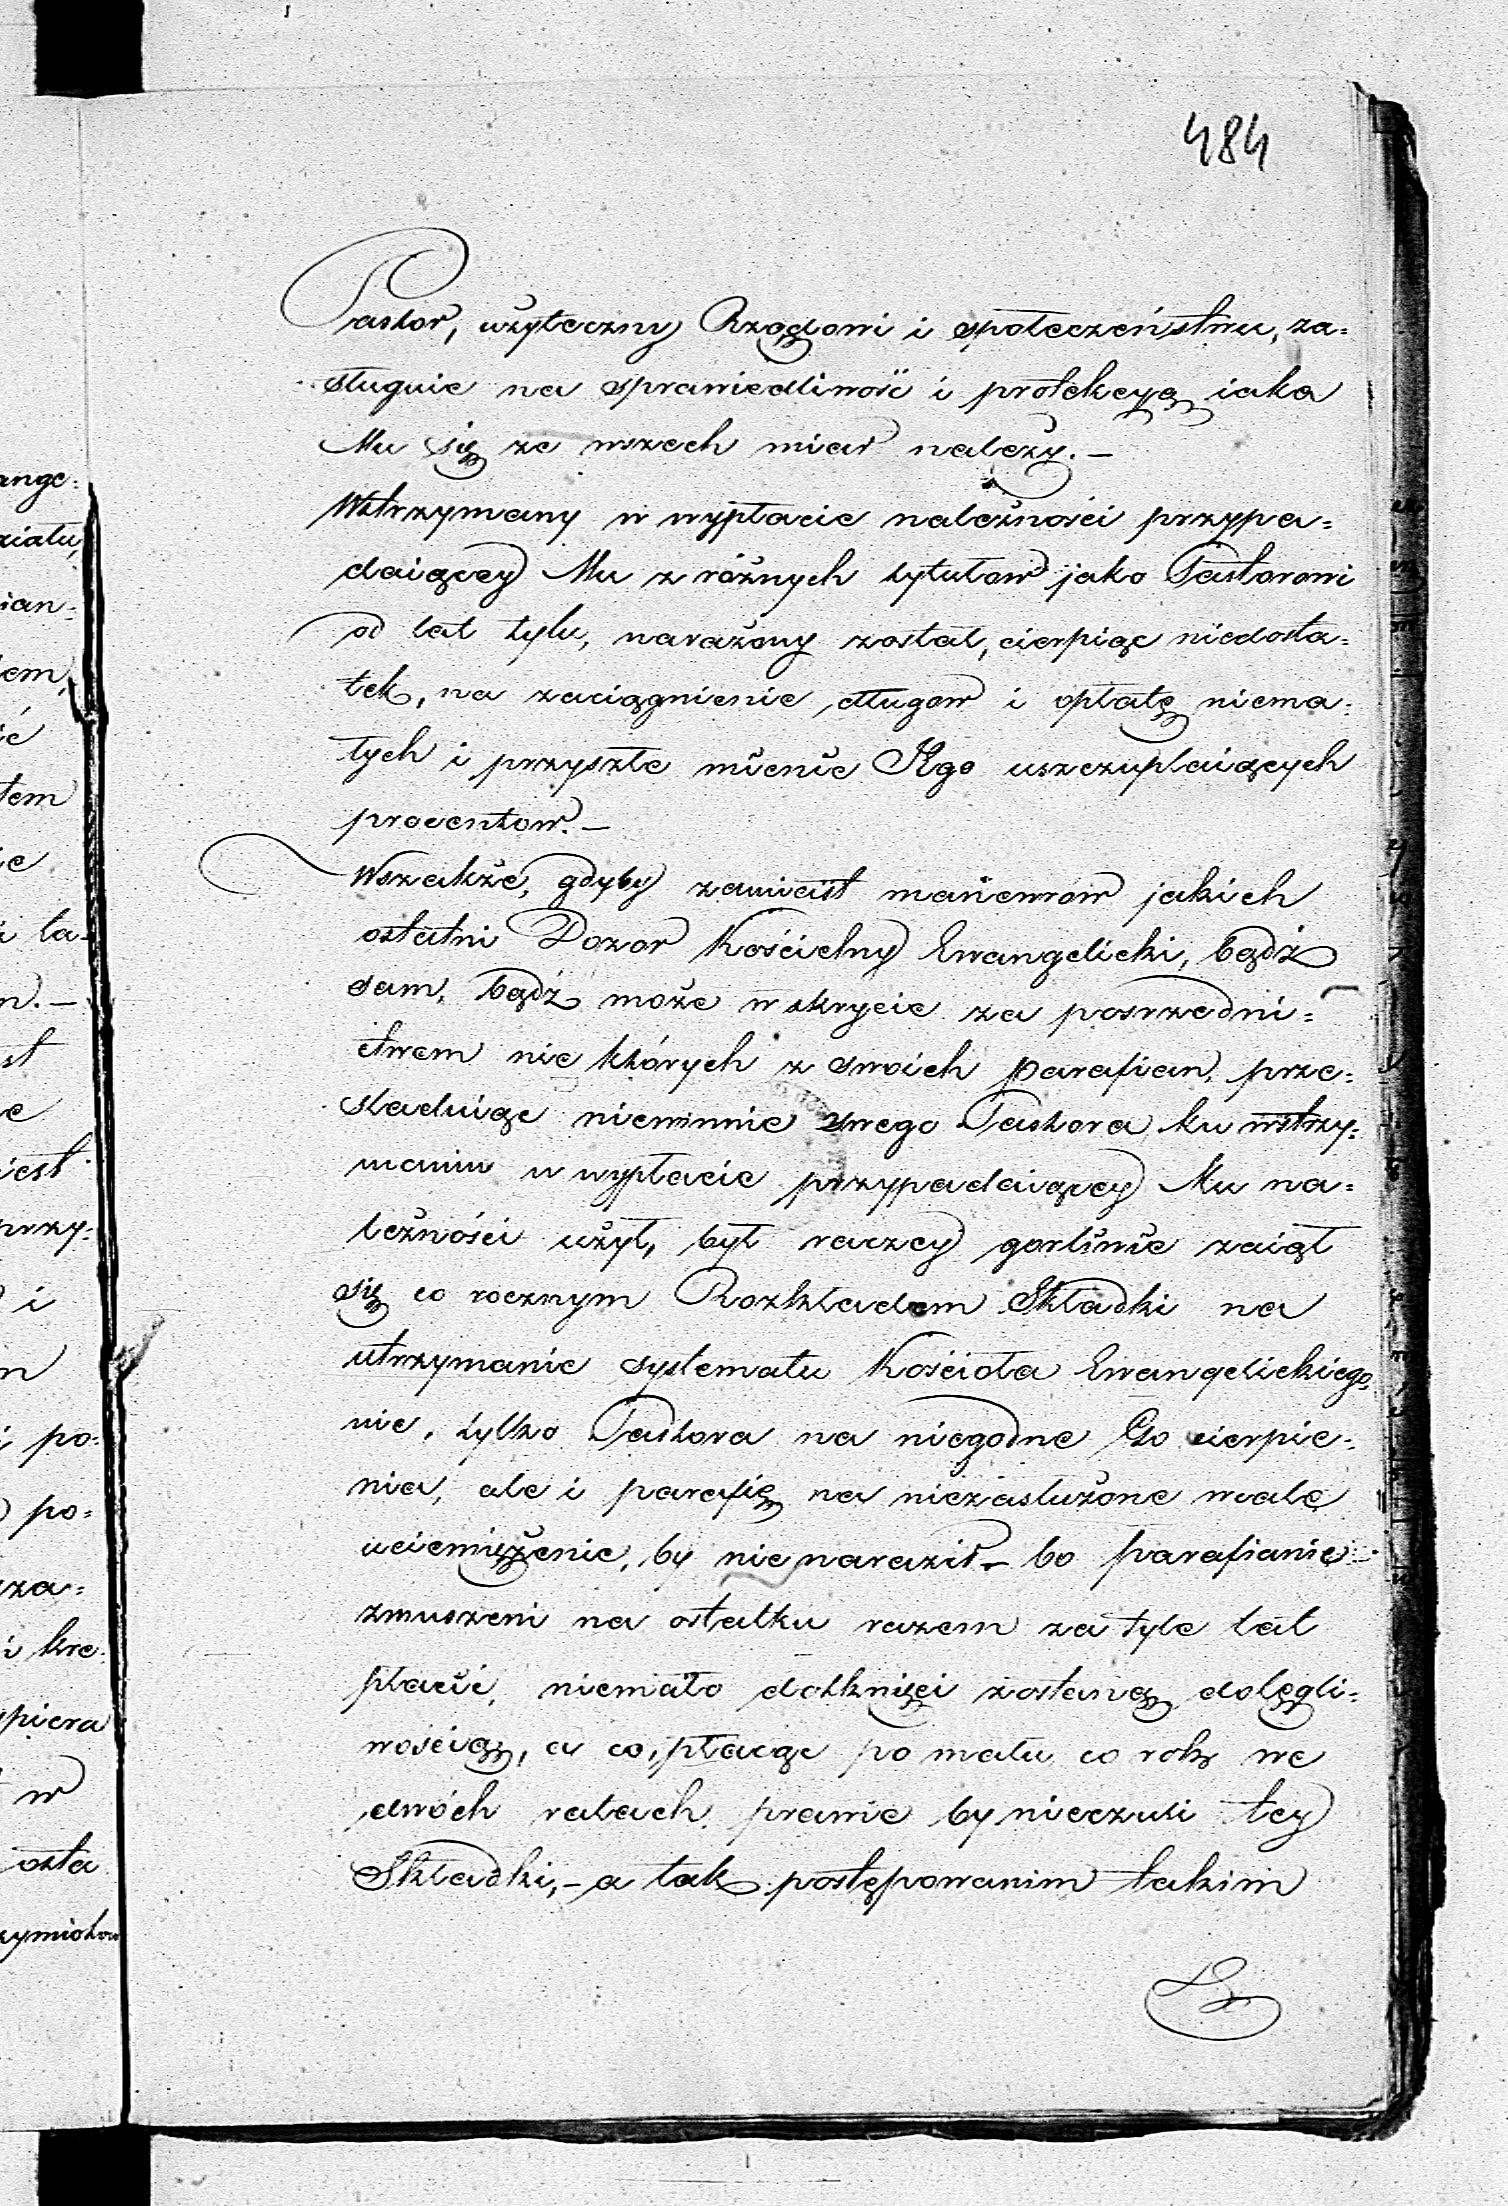 484
Pastor, użyteczny Rządowi i społeczeństwu, za=
sługuie na sprawiedliwość i protekcyą iaka
Mu się ze wszech miar należy. –
Wstrzymany w wypłacie należności przypa=
daiącey Mu z różnych tytułow jako Pastorowi
od lat tylu, narażony został, cierpiąc niedosta=
tek, na zaciągnienie długow i opłatę niema=
łych i przyszłe mienie Jego uszczuplaiących
procentow. –
Wszakże, gdyby zamiast manewrow jakich
ostatni Dozor Kościelny Ewangelicki, bądź
sam, bądź może w skrycie za posrzedni=
ctwem nie których z swoich parafian, prze=
sladuiąc niewinnie swego Pastora ku wstrzy=
maniu w wypłacie przypadaiącey Mu na=
leżności użył, był raczey gorliwie zaiął
się co rocznym Rozkładem Składki na
utrzymanie systematu Kościoła Ewangelickiego,
nie, tylko Pastora na niegodne Go cierpie=
nia, ale i parafię na niezasłużone wcale
uciemiężenie, by nie naraził – bo parafianie
zmuszeni na ostatku razem za tyle lat
płacić, niemało dotknięci zostaną dolegli=
wością, a co, płacąc po mału co rok we
dwóch ratach prawie by nieczuli tey
Składki, – a tak postępowanim takim
ange=
ziatu,
ian=
em,
ić
tem
ie
i ta=
n. –
st
e
iest
przy=
i
n
i po=
po=
za=
i kre=
piera
w
osta
ymiotow